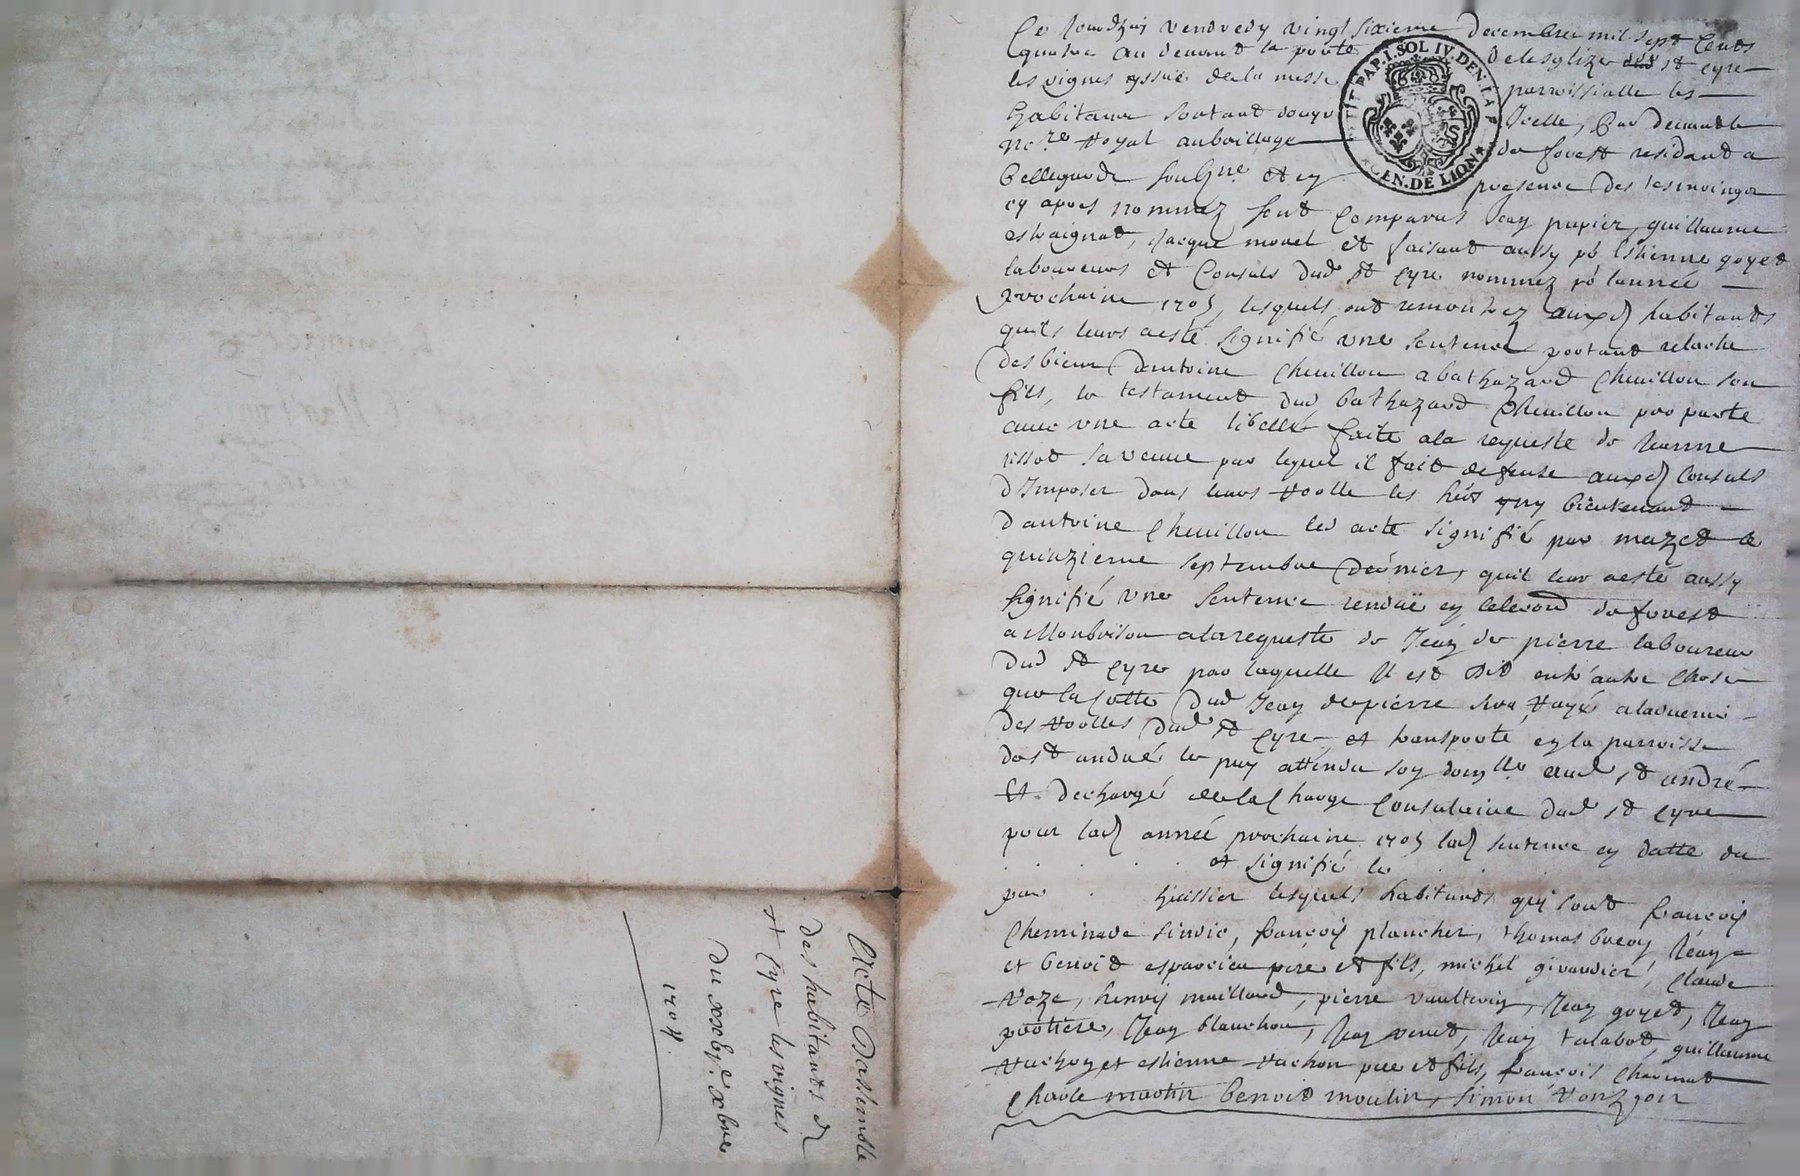 Ce jourdhuy vendredy vingt sixieme decembre mil sept cents
quatre au devant la porte de lesglize st cyre
les vignes yssue de la messe parroissialle les
habitans sortant d'icelle, par devant le
no.re Royal au bailliage de forest residant a
Bellegarde soubs.ne et en presence des tesmoingz
cy apres nommez sont comparus Jean papier, guillaume
estraignat, Jacque morel et faisant aussy po estienne goyet
laboureurs et Consuls dud st Cyre nommez po lannée
prochaine 1705, lesquels ont remontrez auxd habitants
quils leurs a esté signifié une sentence portant relache
des biens d'antoine Cheuillon a bathazard Cheuillon son
fils, le testament dud bathazard Cheuillon
avec une acte libellé faite a la requeste de Jeanne
tissot sa veuve par lequel il fait defense auxd Consuls
d'Imposer dans leurs Roolle les heós bientenant
d'antoine Cheuillon led acte signifié par mazet le
quinzieme septembre dernier, quil leur a esté aussy
signifié une sentence rendue en lelection de forest
a Monbrison a la requeste de Jean de pierre laboureur
dud st Cyre par laquelle Il est dit entr'autre chose
que la Cotte dud Jean depierre sera Rayé a ladvenir
des Roolles dud st Cyre et transporté en la parroisse
de st andré le puy attendu son domlle aud st andré
et dechargé de la Charge Consulaire dud st Cyre
pour lad année prochaine 1705 lad sentence en datte du
et signifié le
par huissier lesquels habitants qui sont francois
Cheminade sindic, francois plancher, thomas bucoy, Jean
et benoit esparcieu pere et fils, michel girandier, Claude
Roze, henry maillard, pierre vaultrin, Jean goyet, Jean
portiere, Jean blanchon, Jean venet, Jean talabot, guillaume
Rachon et estienne Rachon pere et fils, francois Charmat
Charle martin benoit moulin, simon Ronzon
Acte Dassemblé
des habitants d
st Cyre les vignes
Du xxvj.e xbre
1704.
PAP. I. SOL IV. DEN. LA F
GEN. DE LION